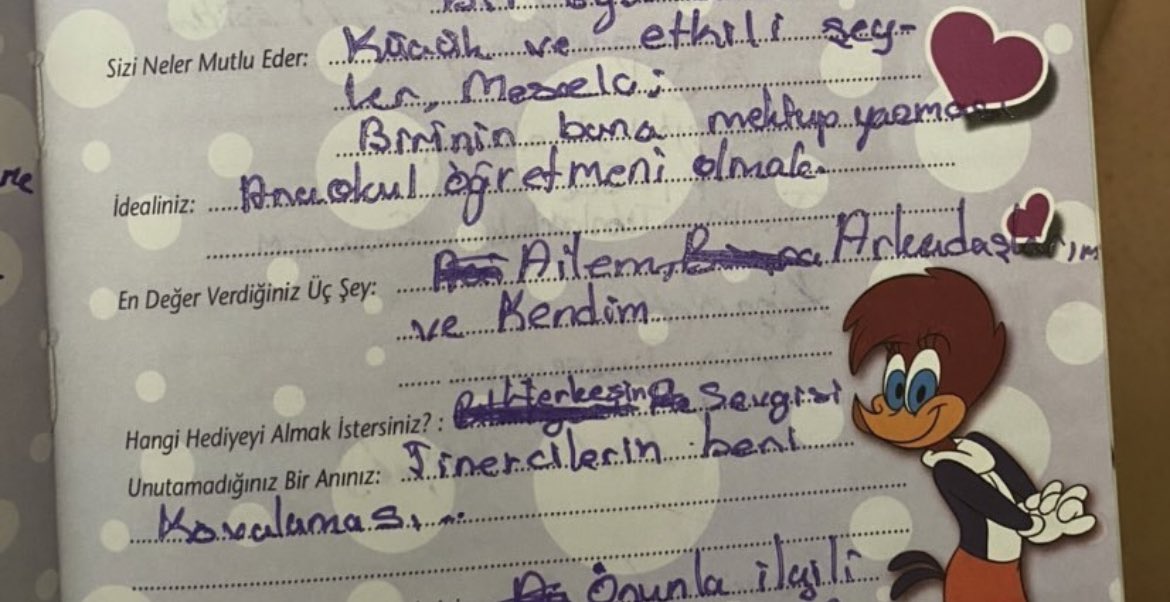 Sizi Neler Mutlu Eder: Küçük ve etkili şey-
ler, Mesela;
Birinin bana mektup yazması
İdealiniz: Anaokul öğretmeni olmak.
En Değer Verdiğiniz Üç Şey: Ailem, Arkadaşlarım
ve Kendim
Hangi Hediyeyi Almak İstersiniz? : Herkeşin Sevgisi
Unutamadığınız Bir Anınız: Tinercilerin beni
Kovalaması...
Onunla ilgili